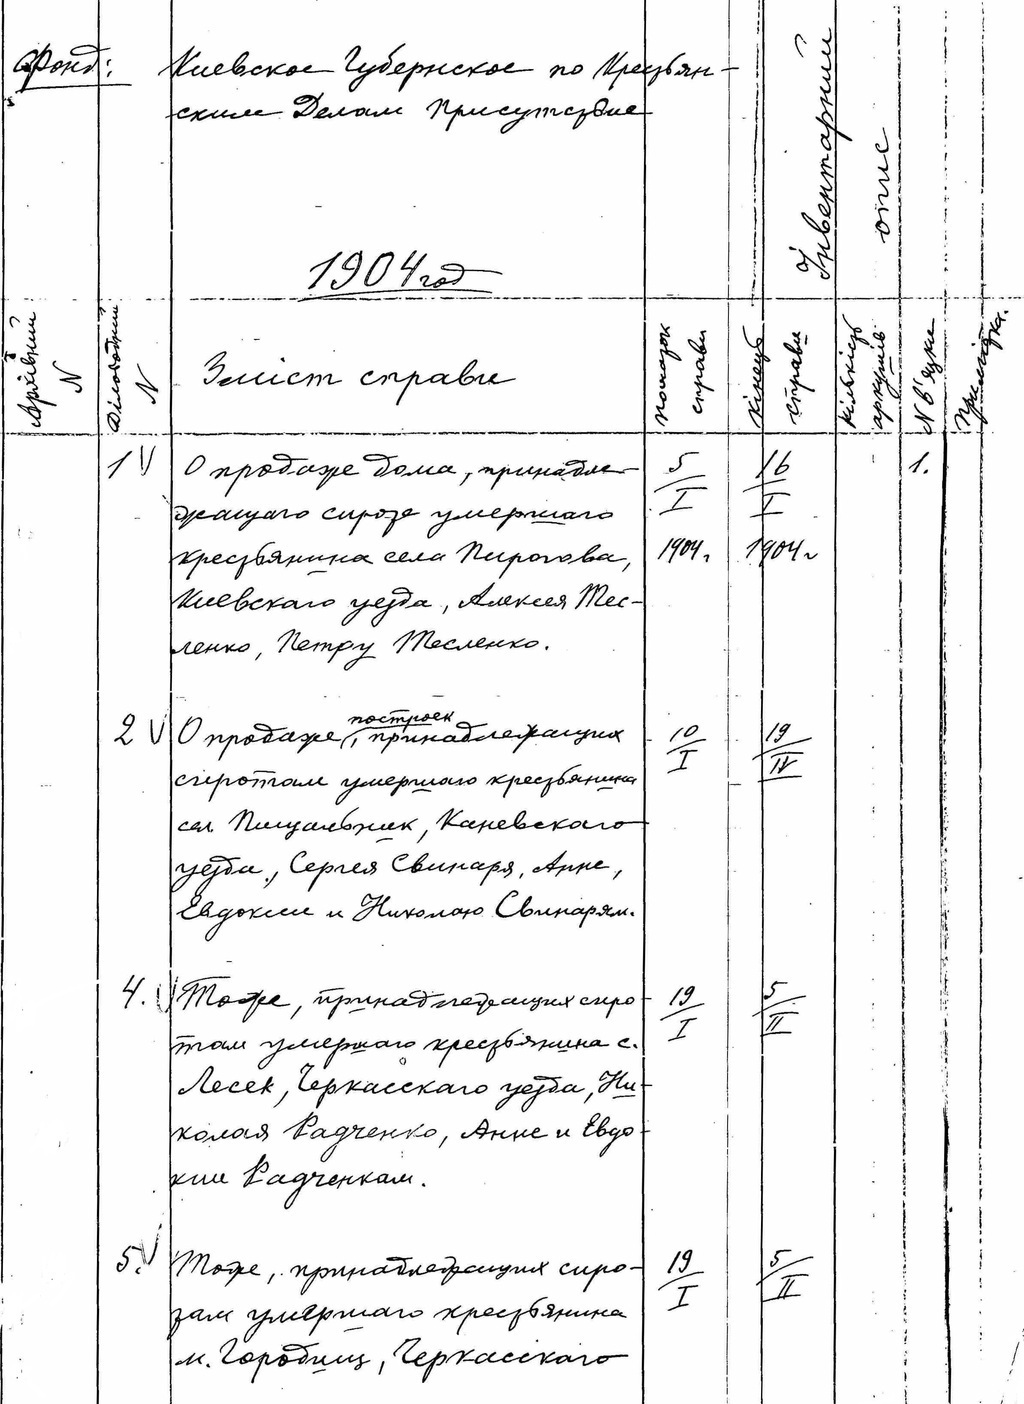 Фонд: Киевское Губернское по Кресьян-
ским Делам Присутствие
Інвентарний
опис
1904 год
Архівний N
Діловодний N
Зміст справи
початок справи
кінець справи
кількість аркушів
N в'язки
Примітка.
1 V О продаже дома, принадле- 5/I 16/I 1.
жащаго сироте умершаго
крестьянина села Пирогова, 1904 г. 1904 г
Киевскаго уезда, Алексея Тес-
ленко, Петру Тесленко.
2 V О продаже построек, принадлежащих 10/I 19/IV
сиротам умершаго крестьянина
сел. Пищальник, Каневскаго
уезда, Сергея Свинаря, Анне,
Евдокии и Николаю Свинарям.
4. V Тоже, принадлежащих сиро- 19/I 5/II
там умершаго крестьянина с.
Лесек, Черкасскаго уезда, Ни-
колая Радченко, Анне и Евдо-
кии Радченкам.
5. V Тоже, принадлежащих сиро- 19/I 5/II
там умершаго крестьянина
м. Городищ, Черкасскаго